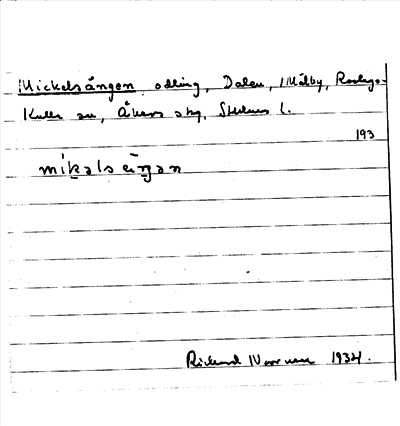 Mickelsängen, odling, Dalen, Målby, Roslags-
Kulla sn, Åkers skg, Sthlms l.
193
mikəlsεŋən
Rickard Norman 1934.